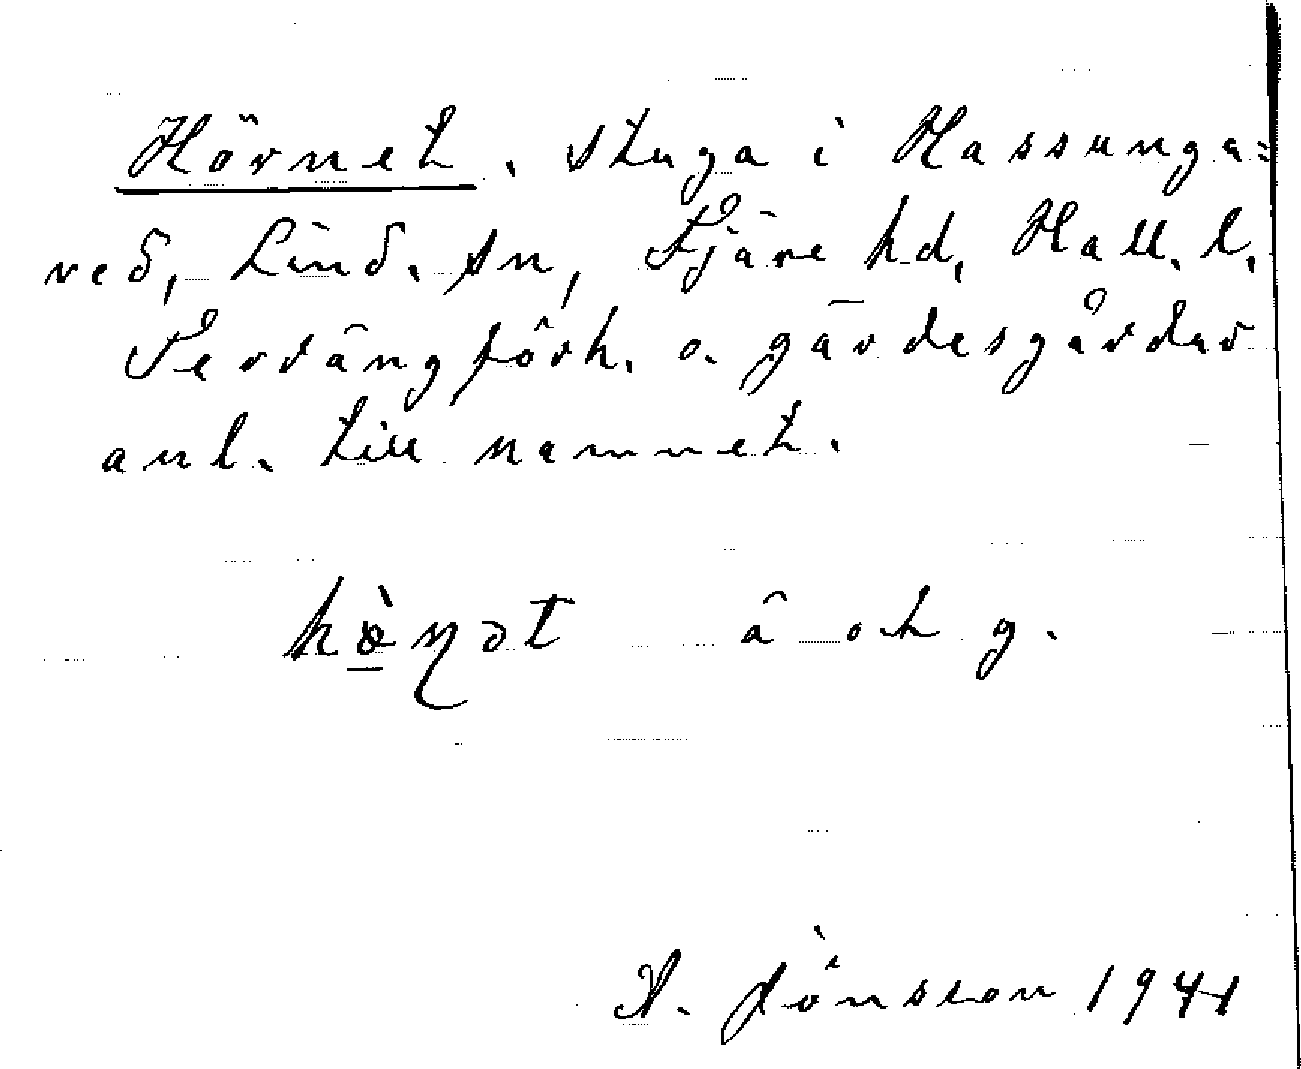 Hörnet, stuga i Hassunga=
red, Lind. sn, Fjäre hd, Hall. l.
Terrängförh. o. gärdesgårdar
anl. till namnet.
hò̱ɳət â och g.
A. Jönsson 1941